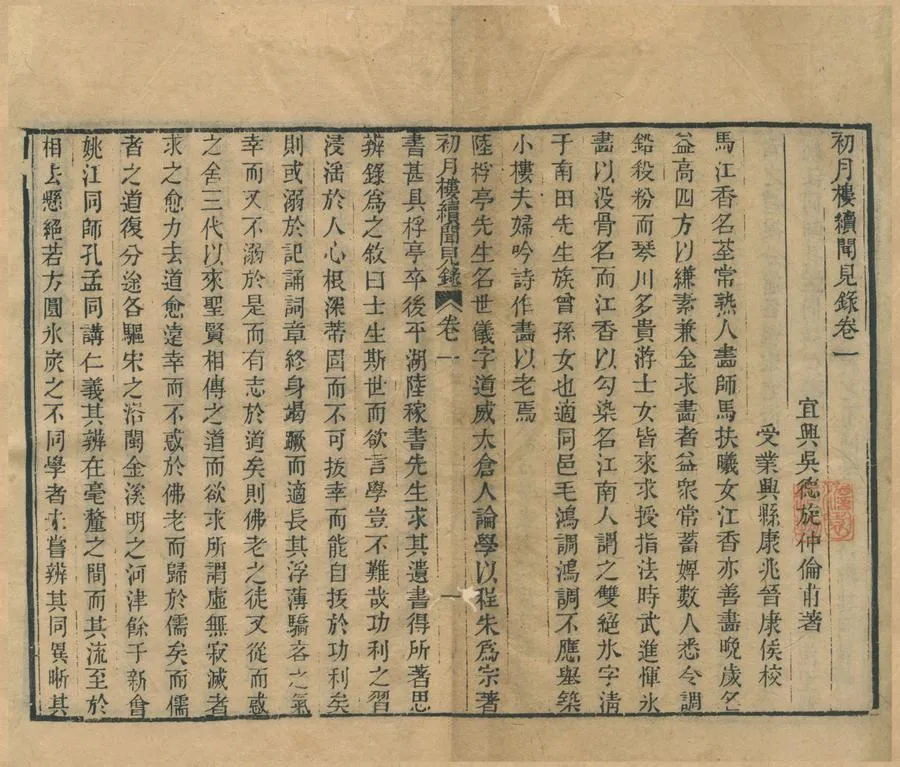 初月樓續聞見錄卷一
宜興吳德旋仲倫甫著
受業興縣康兆晉康侯校
馬江香名荃常熟人畵師馬扶曦女江香亦善畵晚歲名
益高四方以縑素兼金求畵者益衆常蓄婢數人悉令調
鉛殺粉而琴川多貴游士女皆來求授指法時武進惲氷
畵以没骨名而江香以勾染名江南人謂之雙絕氷字淸
于南田先生族曾孫女也適同邑毛鴻調鴻調不應舉築
小樓夫婦吟詩作畵以老焉
陸桴亭先生名世儀字道威太倉人論學以程朱爲宗著
初月樓續聞見錄 卷一 一
書甚具桴亭卒後平湖陸稼書先生求其遺書得所著思
辨錄爲之敘曰士生斯世而欲言學豈不難哉功利之習
浸滛於人心根深蒂固而不可拔幸而能自拔於功利矣
則或溺於記誦詞章終身竭蹶而適長其浮薄驕吝之氣
幸而又不溺於是而有志於道矣則佛老之徒又從而惑
之舍三代以來聖賢相傳之道而欲求所謂虛無寂滅者
求之愈力去道愈遠幸而不惑於佛老而歸於儒矣而儒
者之道復分途各驅宋之洛閩金溪明之河津餘于新會
姚江同師孔孟同講仁義其辨在毫釐之間而其流至於
相去懸絕若方圓氷炭之不同學者未嘗辨其同異晰其